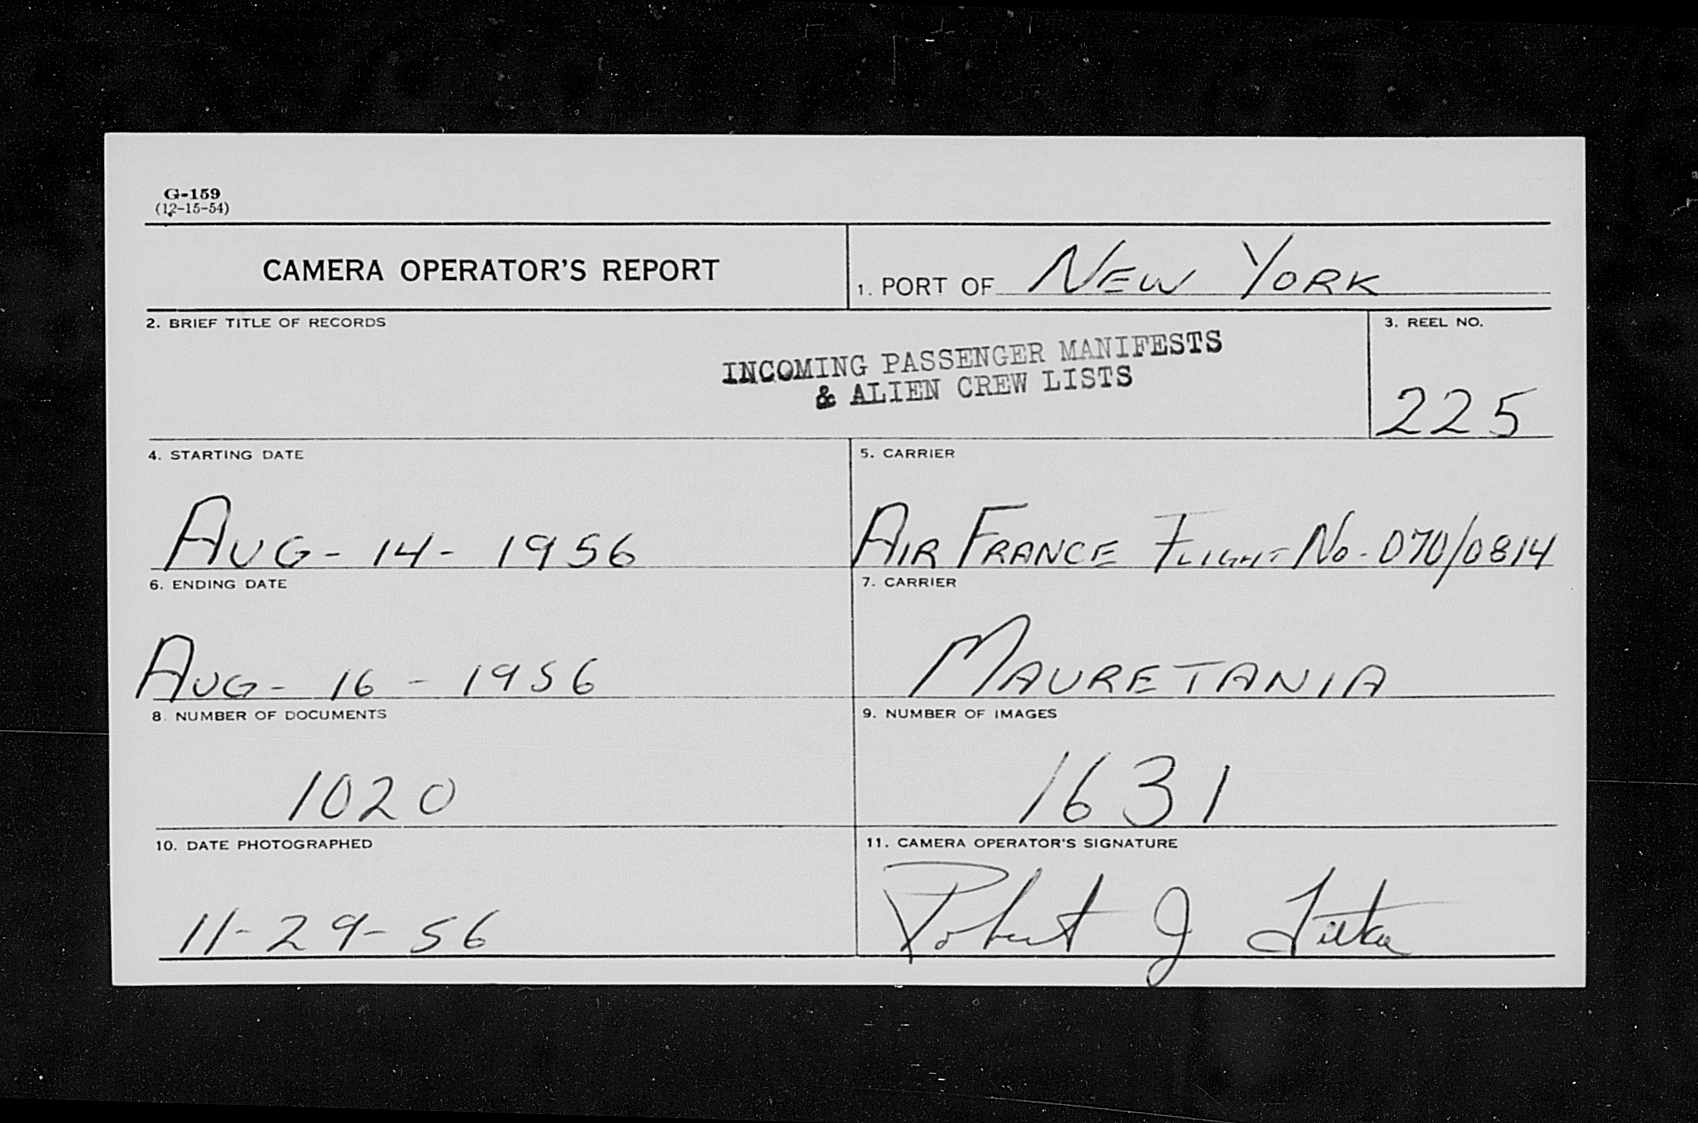 G-159
(12-15-54)
CAMERA OPERATOR'S REPORT
1. PORT OF NEW YORK
2. BRIEF TITLE OF RECORDS
INCOMING PASSENGER MANIFESTS
& ALIEN CREW LISTS
3. REEL NO.
225
4. STARTING DATE
AUG - 14 - 1956
5. CARRIER
AIR FRANCE FLIGHT NO - 070/0814
6. ENDING DATE
AUG - 16 - 1956
7. CARRIER
MAURETANIA
8. NUMBER OF DOCUMENTS
1020
9. NUMBER OF IMAGES
1631
10. DATE PHOTOGRAPHED
11-29-56
11. CAMERA OPERATOR'S SIGNATURE
Robert J